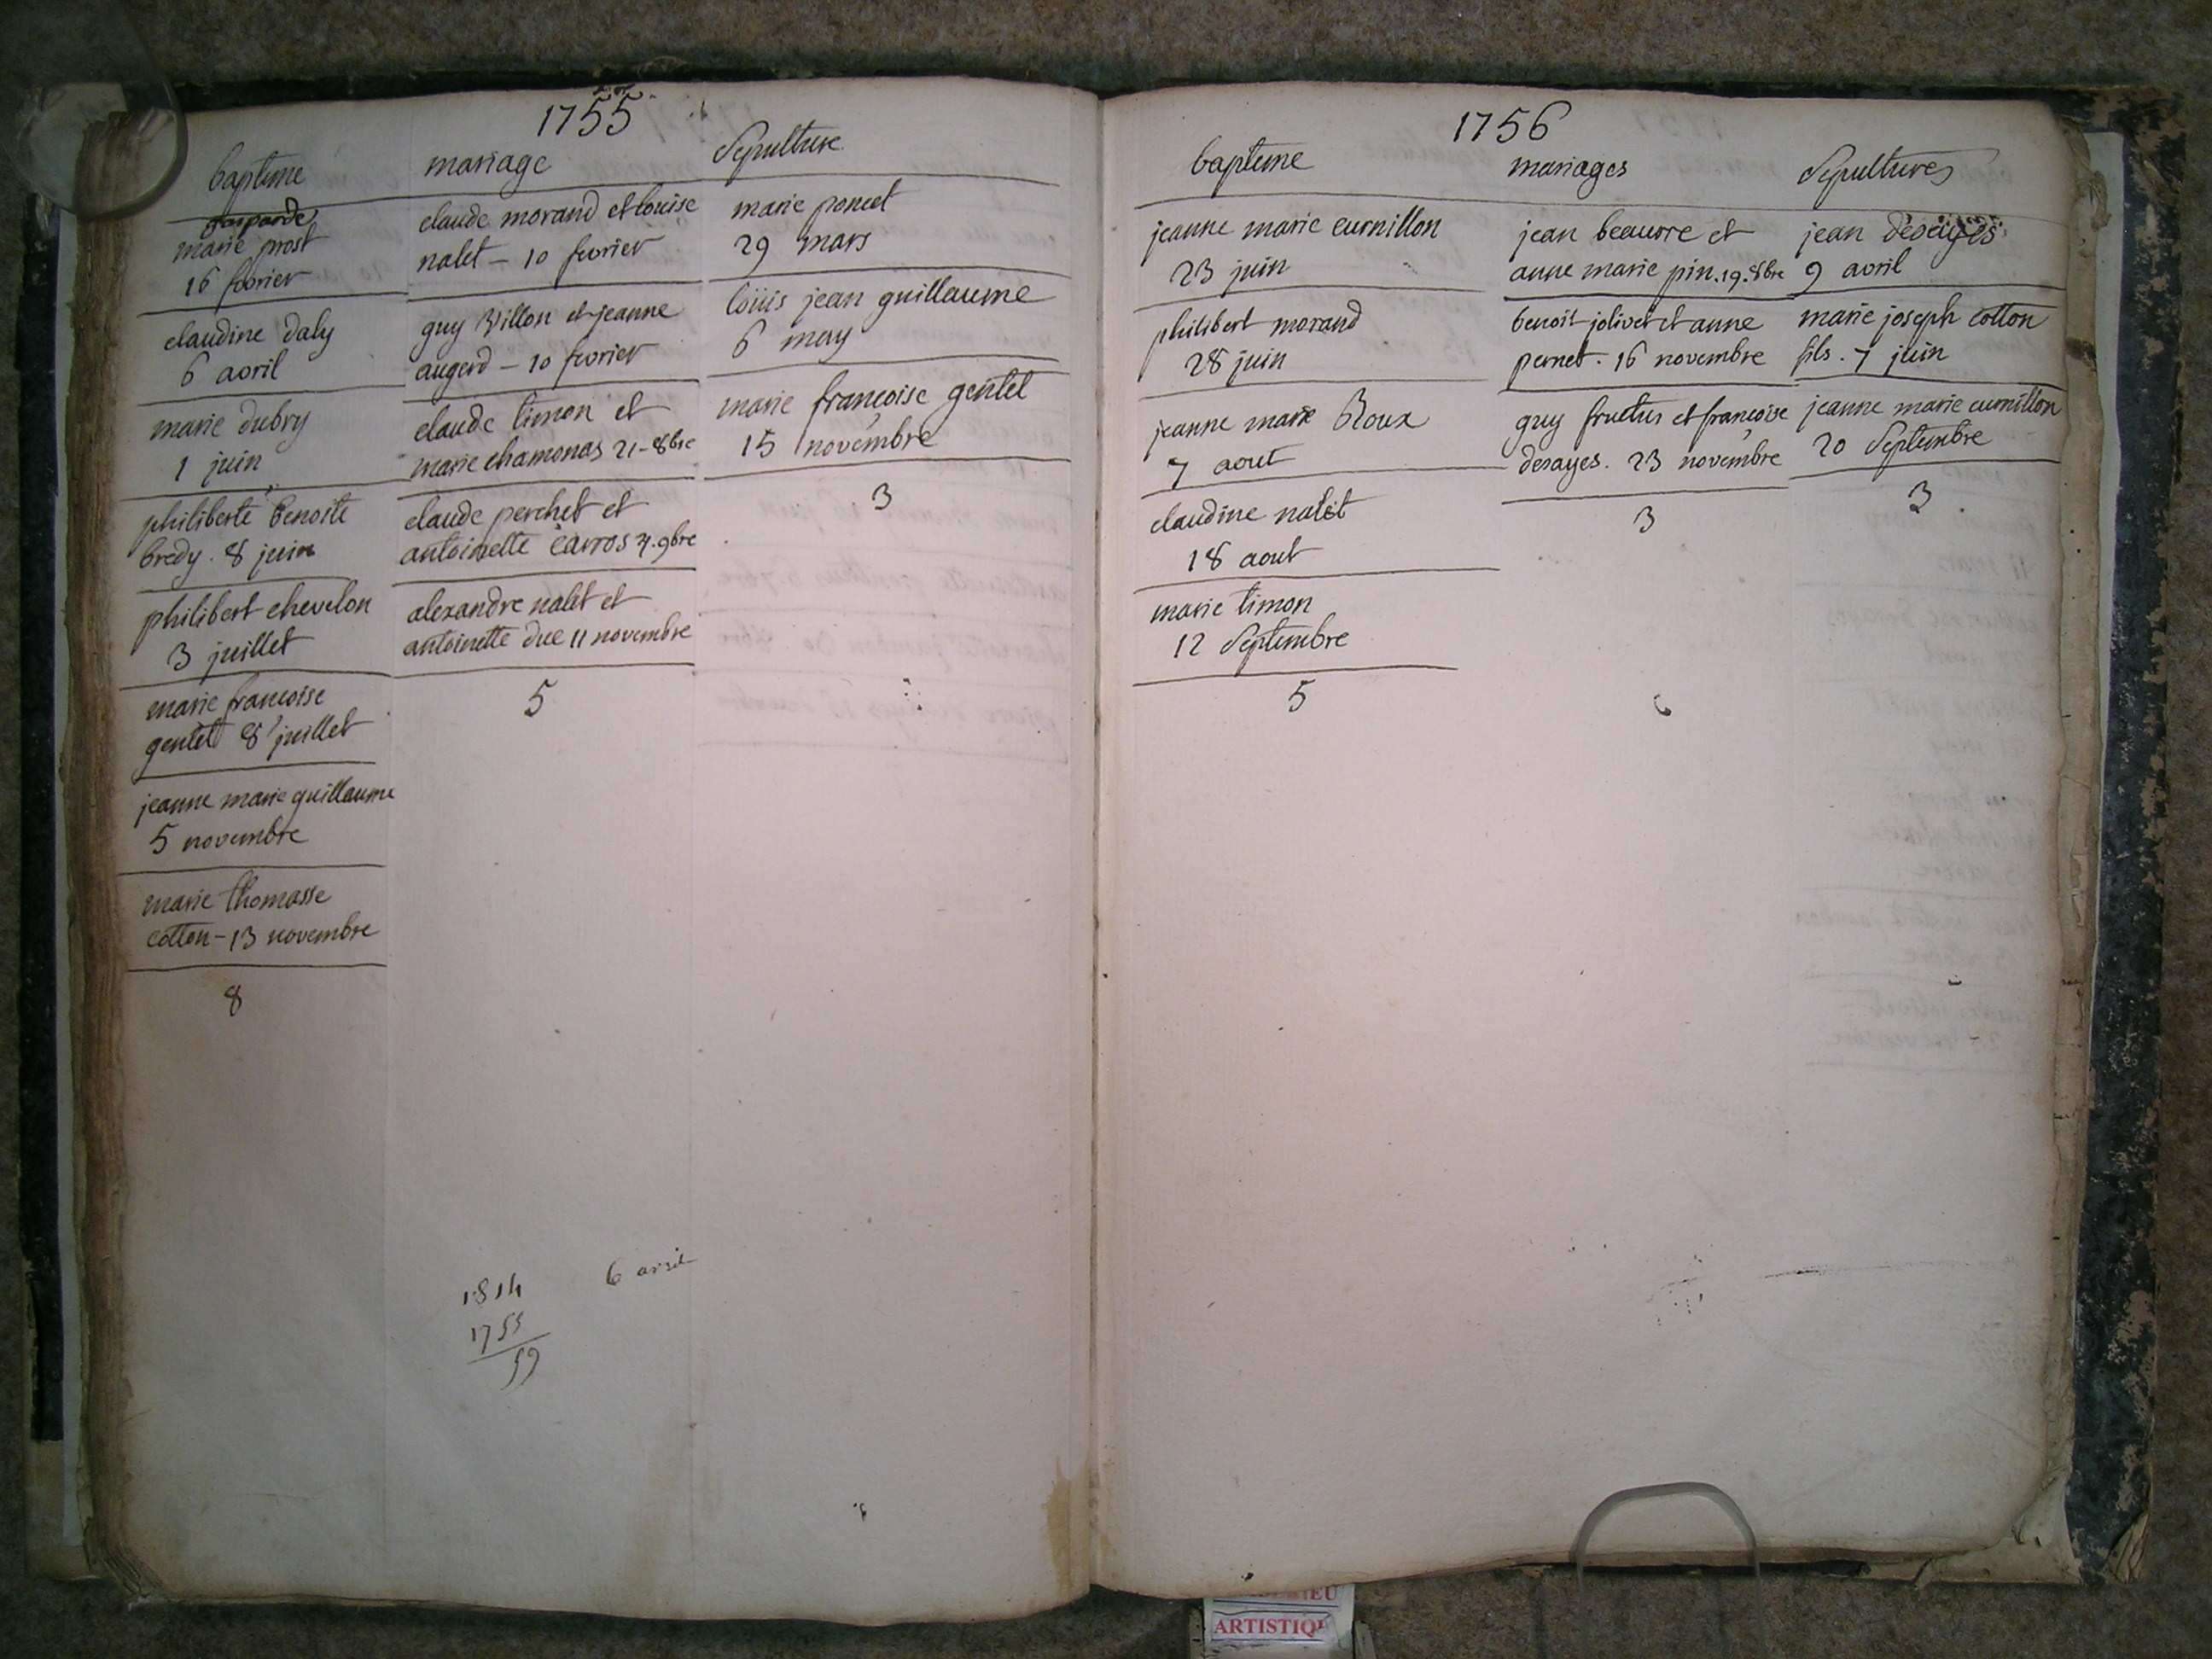 1755
bapteme
mariage
Sepulture
gasparde
marie prost
16 fevrier
claudine daly
6 avril
marie dubry
1 juin
philiberte benoite
bredy . 8 juin
philibert chevelon
3 juillet
marie francoise
gentet 8 juillet
jeanne marie guillaume
5 novembre
marie thomasse
cotton - 13 novembre
8
claude morand et louise
nalet - 10 fevrier
guy villon et jeanne
augerd - 10 fevrier
claude timon et
marie chamonas 21 - 8bre
claude perchet et
antoinette carros 4. 9bre
alexandre nalet et
antoinette duc 11 novembre
5
marie poncet
29 mars
loüis jean guillaume
6 may
marie françoise gentet
15 novembre
3
1814
6 avril
1755
59
1756
bapteme
mariages
Sepultures
jeanne marie curnillon
23 juin
philibert morand
28 juin
jeanne marie Roux
7 aout
claudine nalet
18 aout
marie timon
12 Septembre
5
jean beauvre et
anne marie pin . 19 . 8bre
benoit jolivet et anne
pernet . 16 novembre
guy fructus et françoise
desayes . 23 novembre
3
jean desayes
9 avril
marie joseph cotton
fils . 7 juin
jeanne marie curnillon
20 Septembre
3
ARTISTIQ